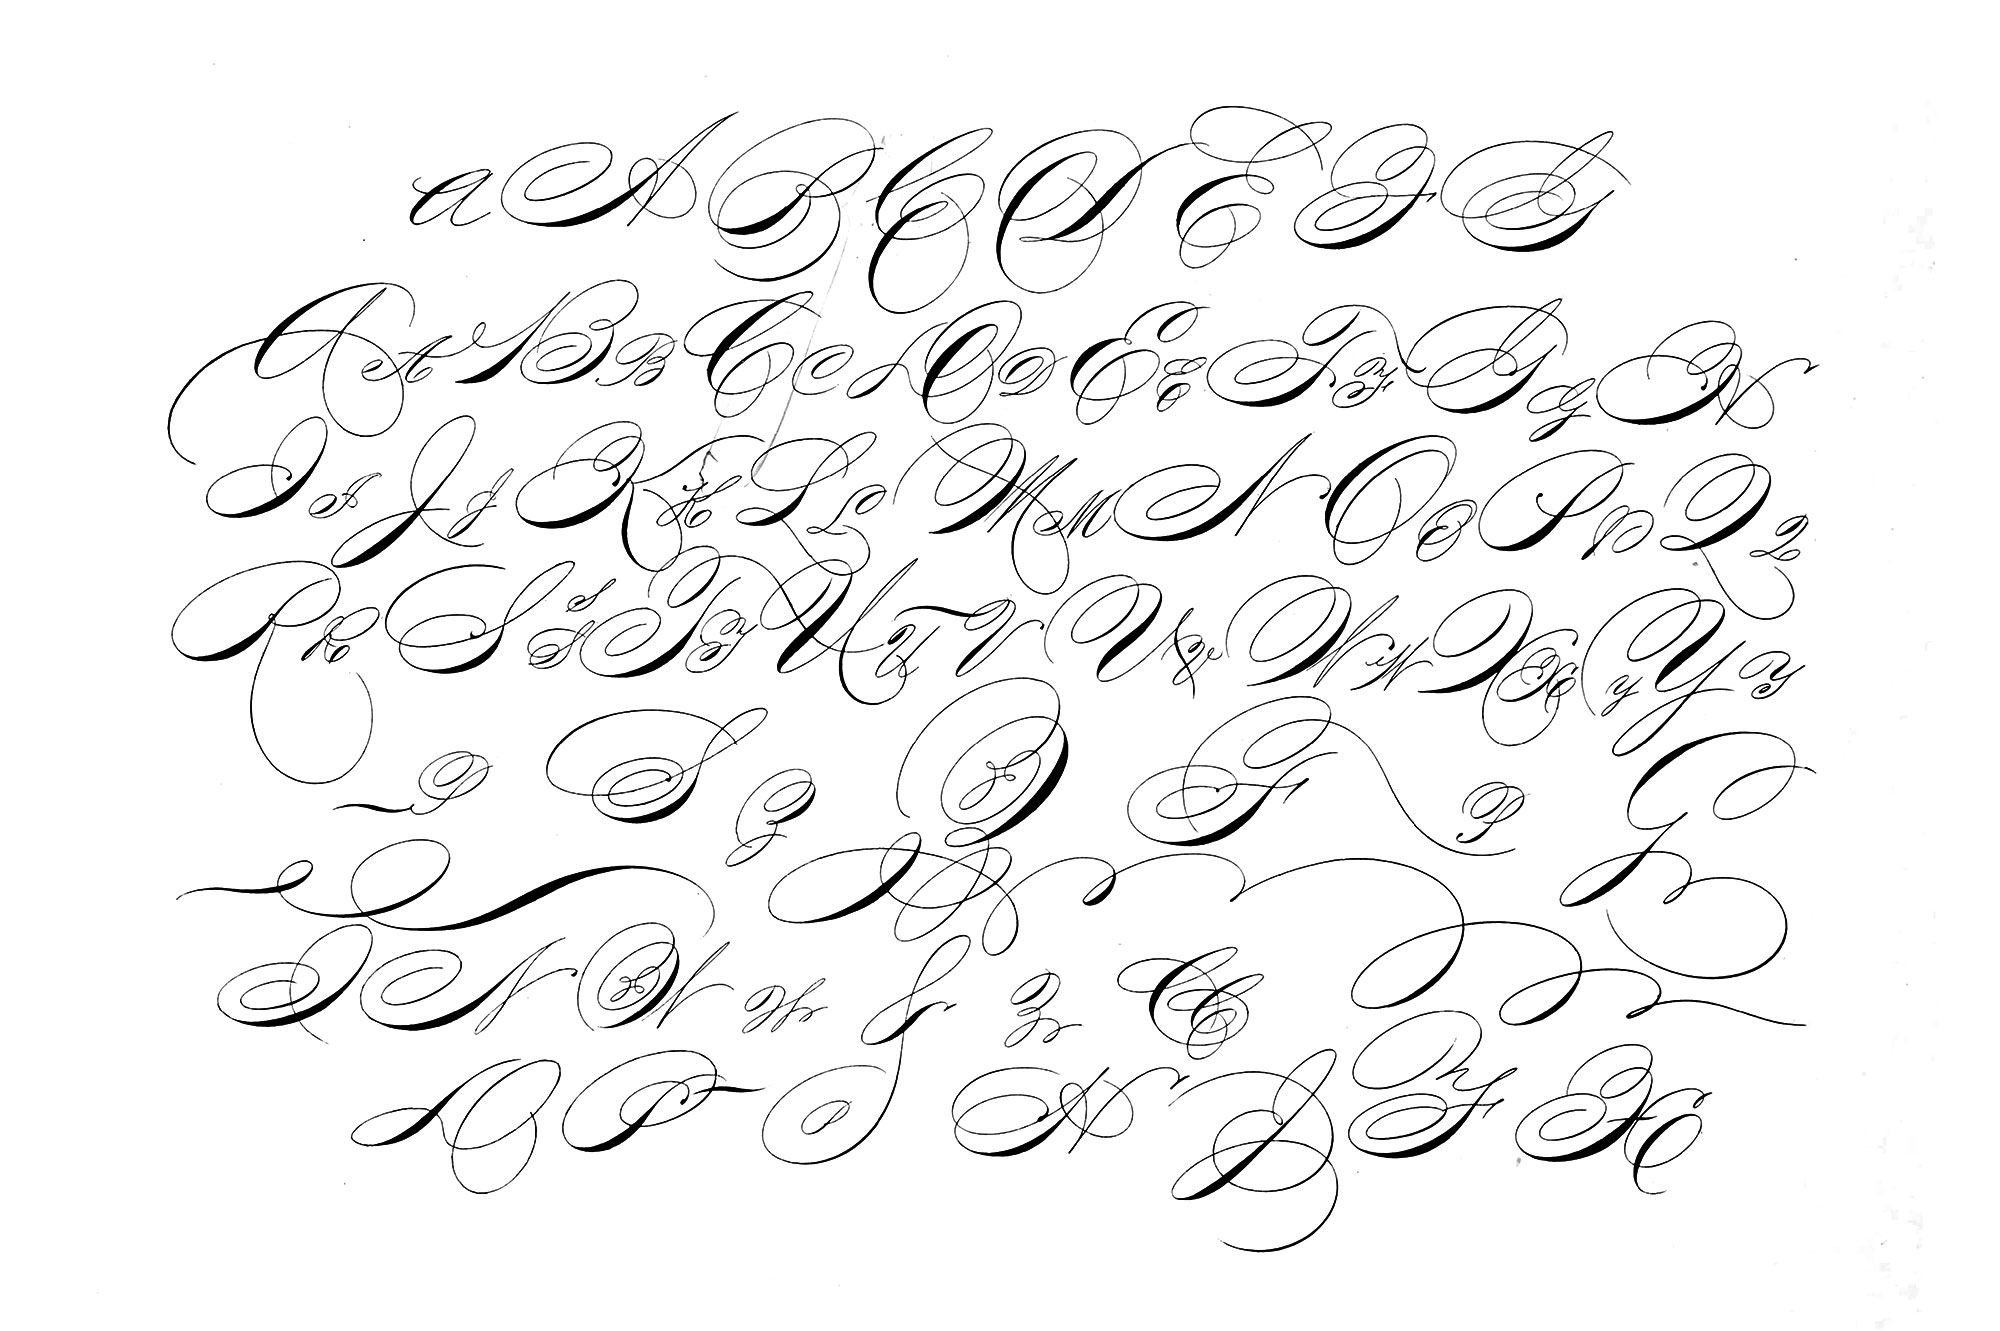 a A B C D E F G
A A B B C C D D E E F F G G H
I I J J K K L L M M N O O P P Q Q
R R S S S T T U U V V V W W X X Y Y Y
P S Z F P G
I N W H S Z C C
D P S H J F X